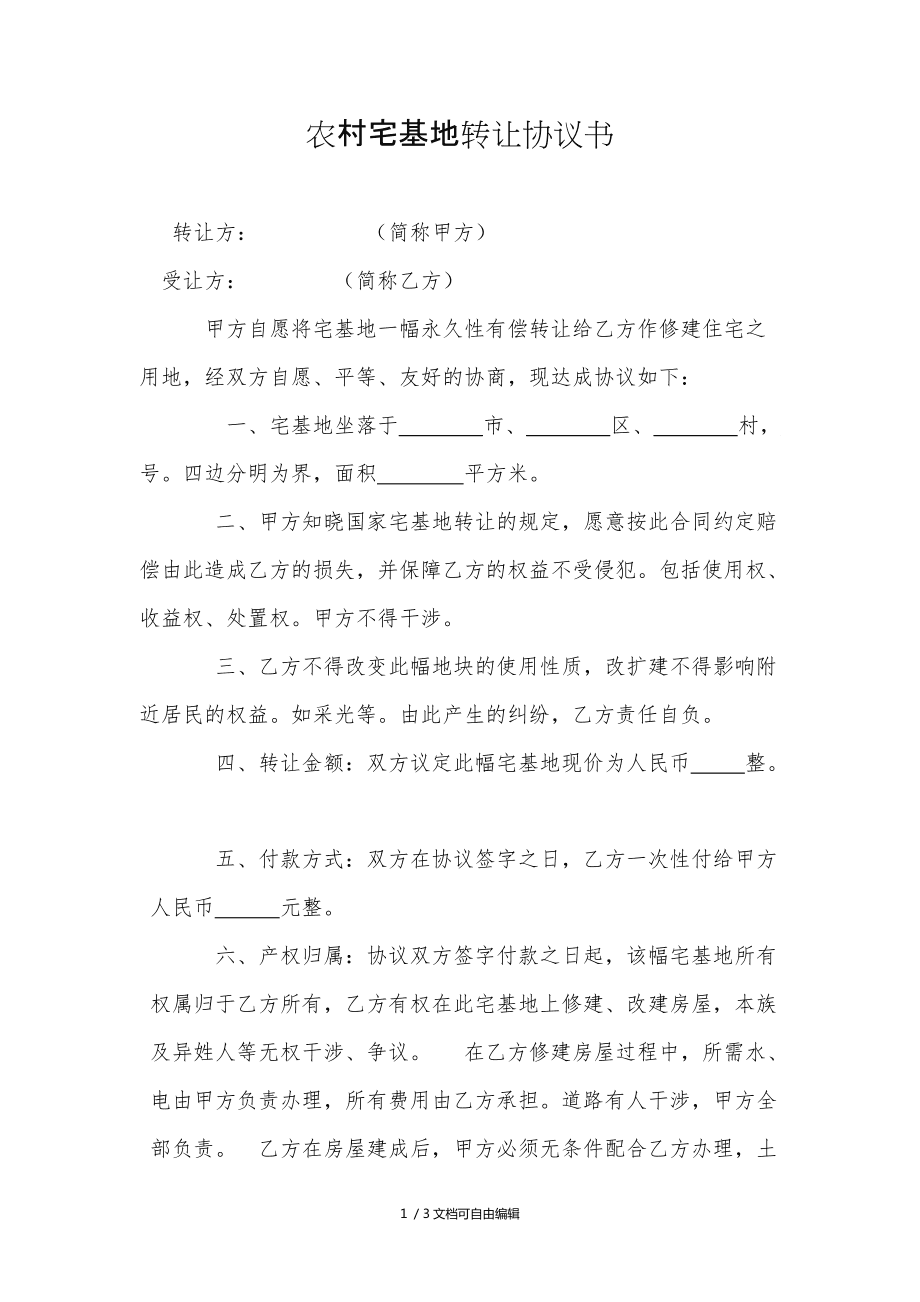 农村宅基地转让协议书
转让方：　　　　　（简称甲方）
受让方：　　　　（简称乙方）
甲方自愿将宅基地一幅永久性有偿转让给乙方作修建住宅之
用地，经双方自愿、平等、友好的协商，现达成协议如下：
一、宅基地坐落于________市、________区、________村，
号。四边分明为界，面积________平方米。
二、甲方知晓国家宅基地转让的规定，愿意按此合同约定赔
偿由此造成乙方的损失，并保障乙方的权益不受侵犯。包括使用权、
收益权、处置权。甲方不得干涉。
三、乙方不得改变此幅地块的使用性质，改扩建不得影响附
近居民的权益。如采光等。由此产生的纠纷，乙方责任自负。
四、转让金额：双方议定此幅宅基地现价为人民币_____整。
五、付款方式：双方在协议签字之日，乙方一次性付给甲方
人民币______元整。
六、产权归属：协议双方签字付款之日起，该幅宅基地所有
权属归于乙方所有，乙方有权在此宅基地上修建、改建房屋，本族
及异姓人等无权干涉、争议。　　在乙方修建房屋过程中，所需水、
电由甲方负责办理，所有费用由乙方承担。道路有人干涉，甲方全
部负责。　乙方在房屋建成后，甲方必须无条件配合乙方办理，土
1 / 3文档可自由编辑